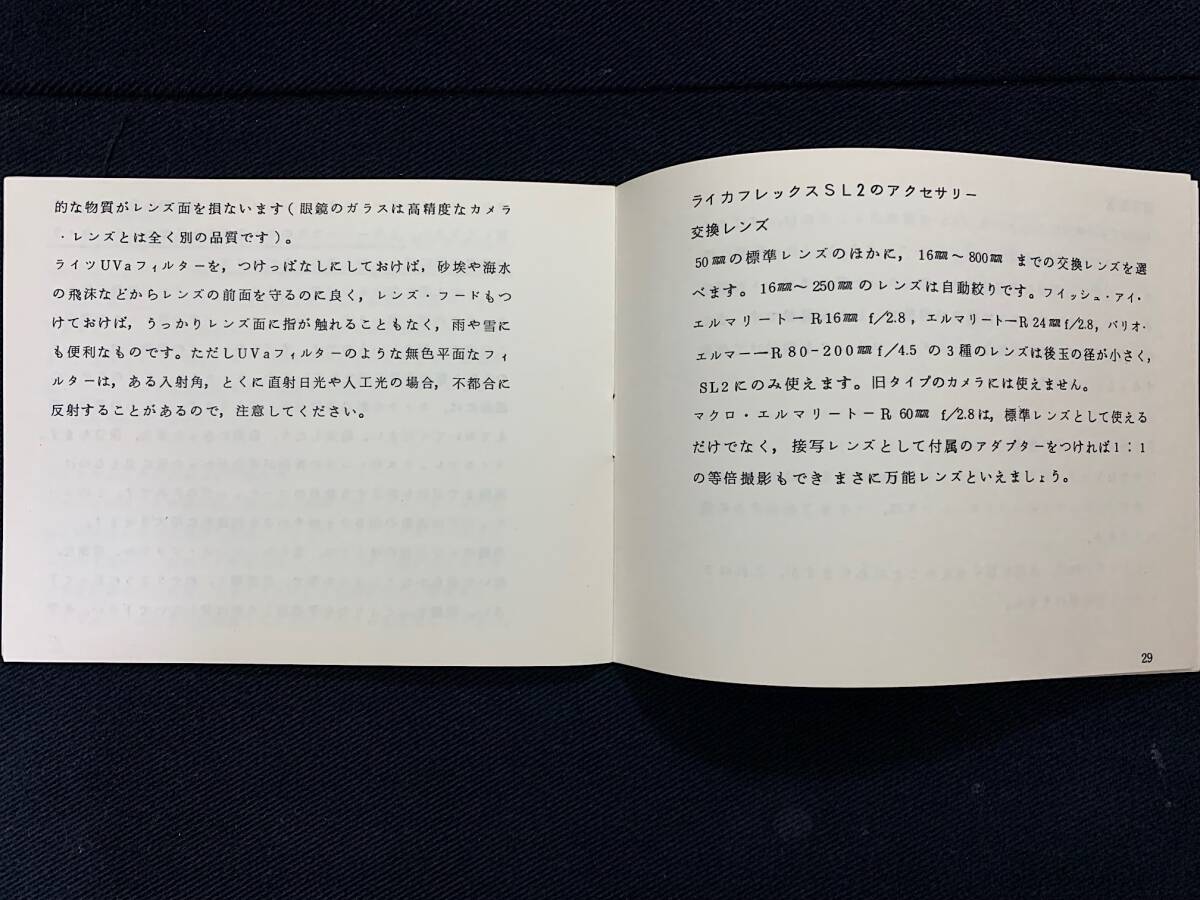 的な物質がレンズ面を損ないます(眼鏡のガラスは高精度なカメラ
・レンズとは全く別の品質です)。
ライツUVaフィルターを,つけっぱなしにしておけば,砂埃や海水
の飛沫などからレンズの前面を守るのに良く,レンズ・フードもつ
けておけば,うっかりレンズ面に指が触れることもなく,雨や雪に
も便利なものです。ただしUVaフィルターのような無色平面なフィ
ルターは,ある入射角,とくに直射日光や人工光の場合,不都合に
反射することがあるので,注意してください。
ライカフレックスSL2のアクセサリー
交換レンズ
50㎜の標準レンズのほかに,16㎜~800㎜ までの交換レンズを選
べます。16㎜~250㎜のレンズは自動絞りです。フイッシュ・アイ・
エルマリートーR16㎜ f/2.8,エルマリートーR24㎜f/2.8,バリオ・
エルマーーR80-200㎜f/4.5 の3種のレンズは後玉の径が小さく,
SL2にのみ使えます。旧タイプのカメラには使えません。
マクロ・エルマリートーR 60㎜ f/2.8は,標準レンズとして使える
だけでなく,接写レンズとして付属のアダプターをつければ1:1
の等倍撮影もでき まさに万能レンズといえましょう。
29